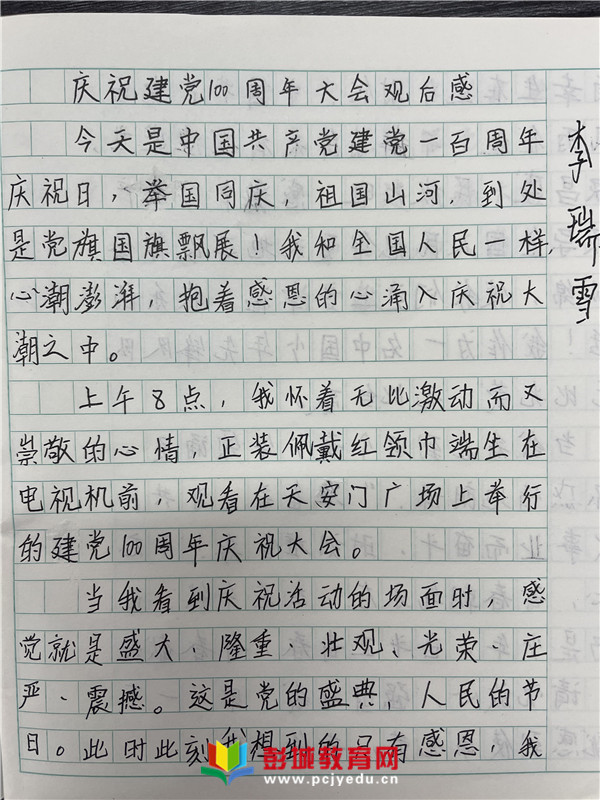 庆祝建党100周年大会观后感
今天是中国共产党建党一百周年
庆祝日，举国同庆，祖国山河，到处
是党旗国旗飘展！我和全国人民一样，
心潮澎湃，抱着感恩的心涌入庆祝大
潮之中。
上午8点，我怀着无比激动而又
崇敬的心情，正装佩戴红领巾端坐在
电视机前，观看在天安门广场上举行
的建党100周年庆祝大会。
当我看到庆祝活动的场面时，感
觉就是盛大、隆重、壮观、光荣、庄
严、震撼。这是党的盛典，人民的节
日。此时此刻我想到的只有感恩，我
李瑞雪
彭城教育网
www.pcjyedu.cn